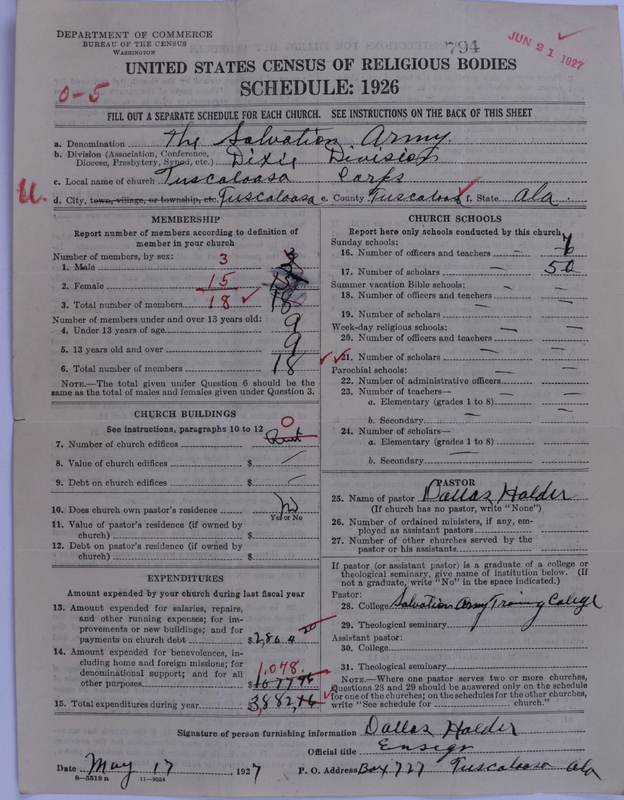 DEPARTMENT OF COMMERCE
BUREAU OF THE CENSUS
WASHINGTON
794
JUN 21 1927
UNITED STATES CENSUS OF RELIGIOUS BODIES
SCHEDULE: 1926
0-5
FILL OUT A SEPARATE SCHEDULE FOR EACH CHURCH. SEE INSTRUCTIONS ON THE BACK OF THIS SHEET
a. Denomination The Salvation Army.
b. Division (Association, Conference, Diocese, Presbytery, Synod, etc.) Dixie Division
c. Local name of church Tuscaloosa Corps
U.
d. City, town, village, or township, etc. Tuscaloosa e. County Tuscaloosa f. State Ala.
MEMBERSHIP
Report number of members according to definition of
member in your church
Number of members, by sex:
1. Male 3
2. Female 15
3. Total number of members 18 18
Number of members under and over 13 years old:
4. Under 13 years of age 9
5. 13 years old and over 9
6. Total number of members 18
NOTE.—The total given under Question 6 should be
same as the total of males and females given under Question 3.
CHURCH BUILDINGS
See instructions, paragraphs 10 to 12
7. Number of church edifices 0 Rent
8. Value of church edifices $
9. Debt on church edifices $
10. Does church own pastor's residence No
Yes or No
11. Value of pastor's residence (if owned by
church) $
12. Debt on pastor's residence (if owned by
church) $
EXPENDITURES
Amount expended by your church during last fiscal year
13. Amount expended for salaries, repairs,
and other running expenses; for im-
provements or new buildings; and for
payments on church debt $2,804
14. Amount expended for benevolences, in-
cluding home and foreign missions; for
denominational support; and for all
other purposes 1,078. $1077
15. Total expenditures during year 3,882
CHURCH SCHOOLS
Report here only schools conducted by this church
Sunday schools:
16. Number of officers and teachers 6
17. Number of scholars 50
Summer vacation Bible schools:
18. Number of officers and teachers
19. Number of scholars
Week-day religious schools:
20. Number of officers and teachers
21. Number of scholars
Parochial schools:
22. Number of administrative officers
23. Number of teachers—
a. Elementary (grades 1 to 8)
b. Secondary
24. Number of scholars—
a. Elementary (grades 1 to 8)
b. Secondary
PASTOR
25. Name of pastor Dallas Halder
(If church has no pastor, write "None")
26. Number of ordained ministers, if any, em-
ployed as assistant pastors
27. Number of other churches served by the
pastor or his assistants
If pastor (or assistant pastor) is a graduate of a college or
theological seminary, give name of institution below. (If
not a graduate, write "No" in the space indicated.)
Pastor:
28. College Salvation Army Training College
29. Theological seminary
Assistant pastor:
30. College
31. Theological seminary
NOTE.—Where one pastor serves two or more churches,
Questions 28 and 29 should be answered only on the schedule
for one of the churches; on the schedules for the other churches,
write "See schedule for church."
Signature of person furnishing information Dallas Halder
Official title Ensign
Date May 17, 1927 P. O. Address Box 727 Tuscaloosa Ala
8-5518 a 11-9054